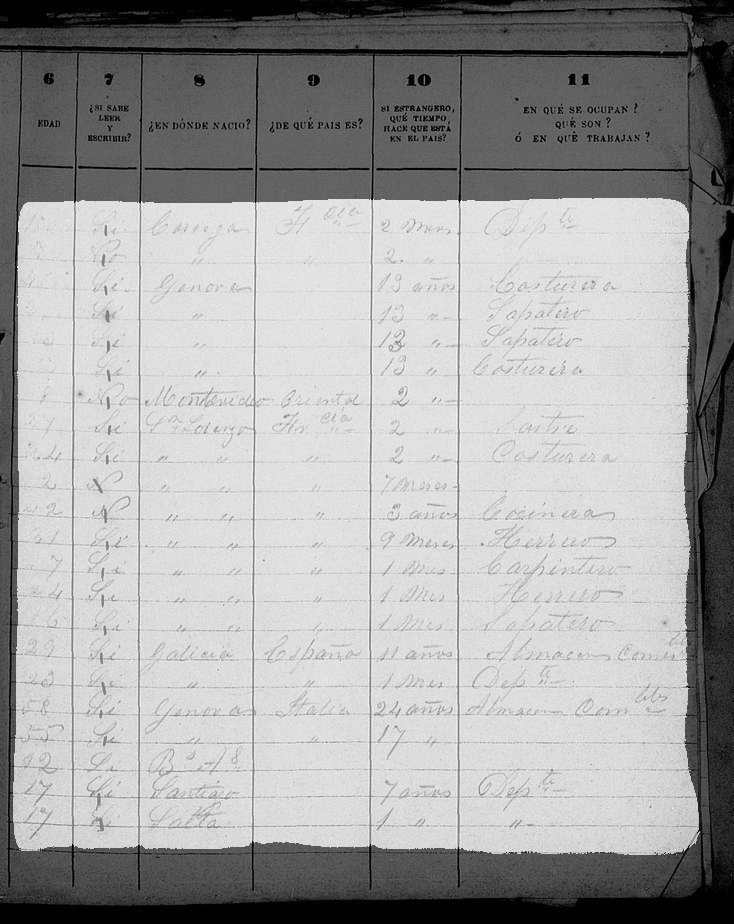 6 7 8 9 10 11
EDAD ¿SI SABE LEER Y ESCRIBIR? ¿EN DÓNDE NACIO? ¿DE QUÉ PAIS ES? SI ESTRANGERO, QUÉ TIEMPO, HACE QUE ESTÁ EN EL PAIS? EN QUÉ SE OCUPAN? QUÉ SON? Ó EN QUÉ TRABAJAN?
Si Fr cia 2 Dep te
No " " 2 "
Si Genova 13 años Costurera
Si " 13 " Sapatero
Si " 13 " Sapatero
Si " 13 " Costurera
No Montevideo Oriental 2 "
Si Sn Lorenzo Fr cia 2 " Sastre
24 Si " " " 2 " Costurera
2 N " " " 7 meses
42 N " " " 3 años Cocinera
Si " " " 9 meses Herrero
Si " " " 1 mes Carpintero
Si " " " 1 mes Herrero
Si " " " 1 mes Sapatero
29 Si Galicia España 11 años Almacen
23 Si " " 1 mes Dep te
58 Si Genova Italia 24 años Almacen Com tibs
55 Si " " 17 "
12 Si Bs As
17 Si Santiago 7 años Dep te
17 Si Salta 1 " "